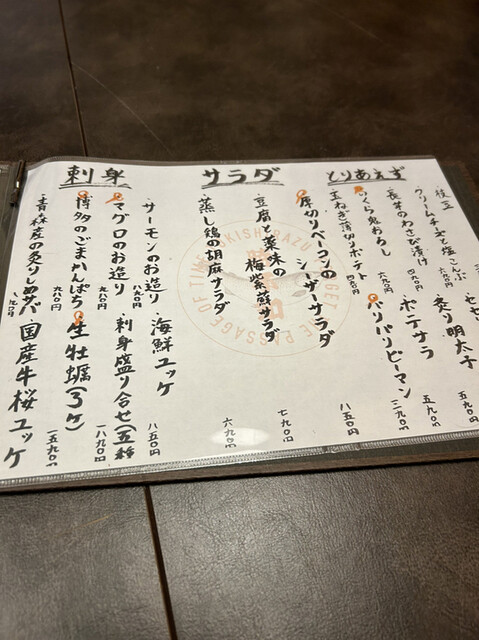 とりあえず
枝豆
クリームチーズと塩こんぶ 六九〇円
炙り明太子 五九〇円
長芋のわさび漬け 四九〇円
ポテサラ 五九〇円
いくら鬼おろし 六九〇円
パリパリピーマン 三九〇円
玉ねぎ薄切りポテト 四九〇円
サラダ
厚切りベーコンのシーザーサラダ 八五〇円
豆腐と薬味の梅紫蘇サラダ 七九〇円
蒸し鶏の胡麻サラダ 六九〇円
刺身
サーモンのお造り 八九〇円
海鮮ユッケ 八五〇円
マグロのお造り 九八〇円
刺身盛り合せ(五種 一八九〇円
博多のごまかんぱち 九八〇円
生牡蠣(3ケ) 一五九〇円
青森産の炙りしめサバ 九九〇円
国産牛桜ユッケ
KISHIRAZU
GET THE PASSAGE OF TIME